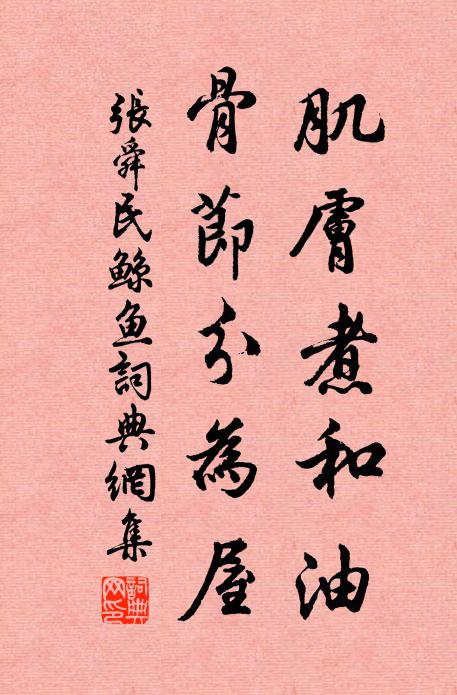 肌膚煮和油
骨節分為屋
張舜民鯨魚詞典網集
詞典
网印